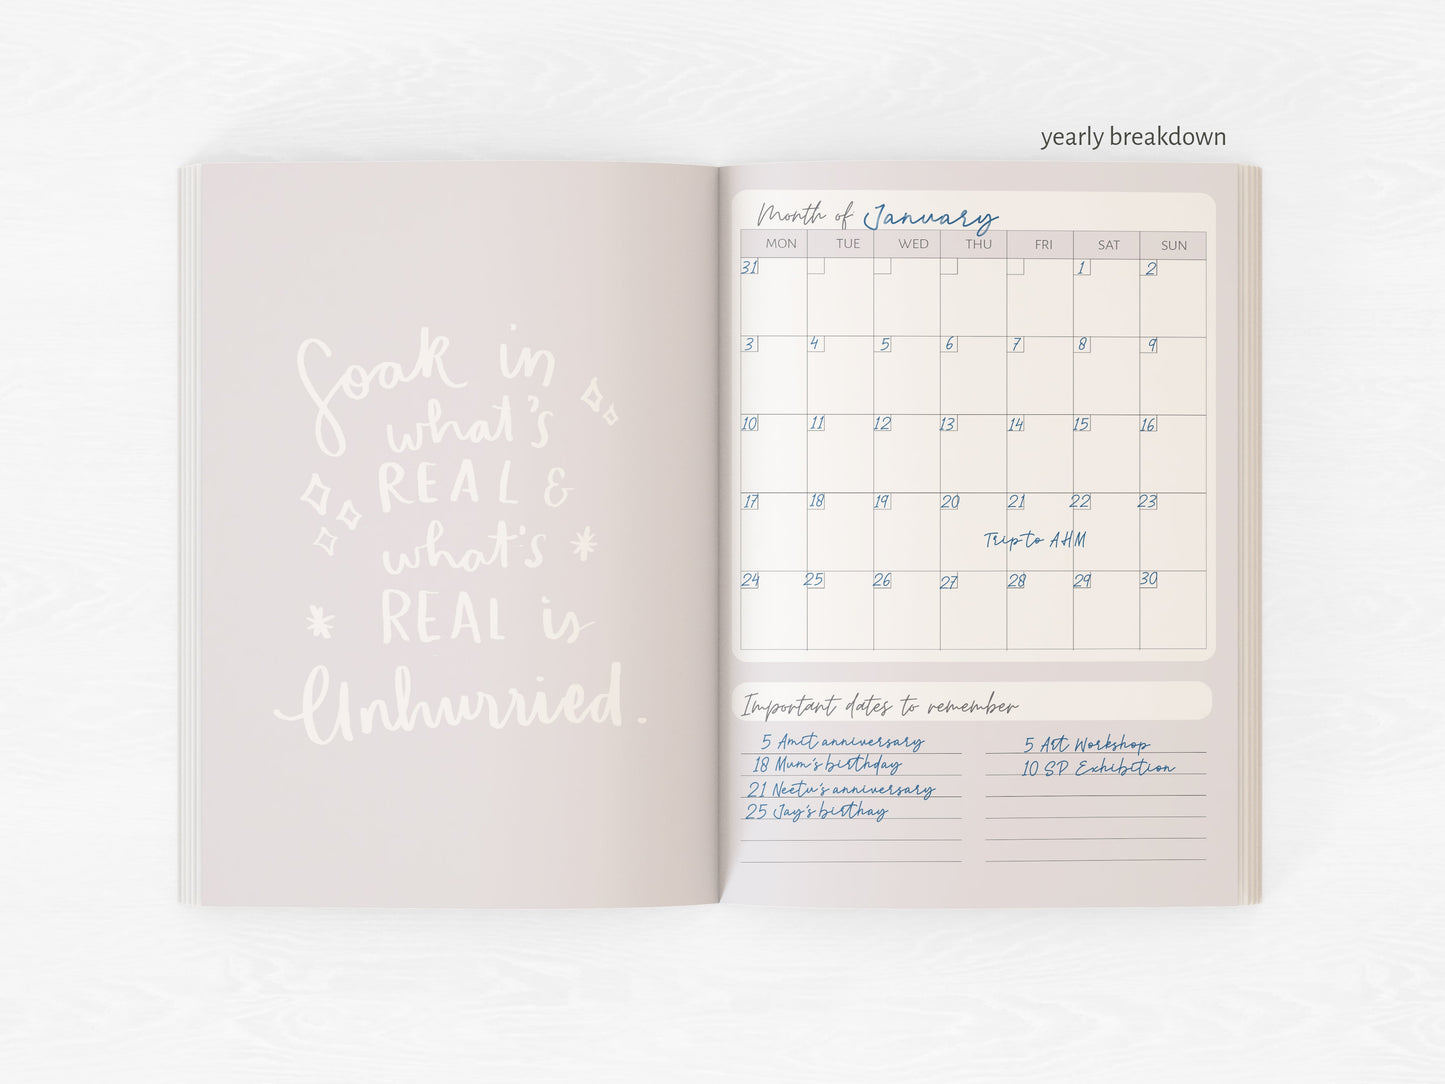 yearly breakdown
Soak in
what's
REAL &
what's
REAL is
Unhurried.
Month of January
MON TUE WED THU FRI SAT SUN
31 1 2
3 4 5 6 7 8 9
10 11 12 13 14 15 16
17 18 19 20 21 22 23
Trip to AHM
24 25 26 27 28 29 30
Important dates to remember
5 Amit anniversary
18 Mum's birthday
21 Neetu's anniversary
25 Jay's birthay
5 Art Workshop
10 SP Exhibition